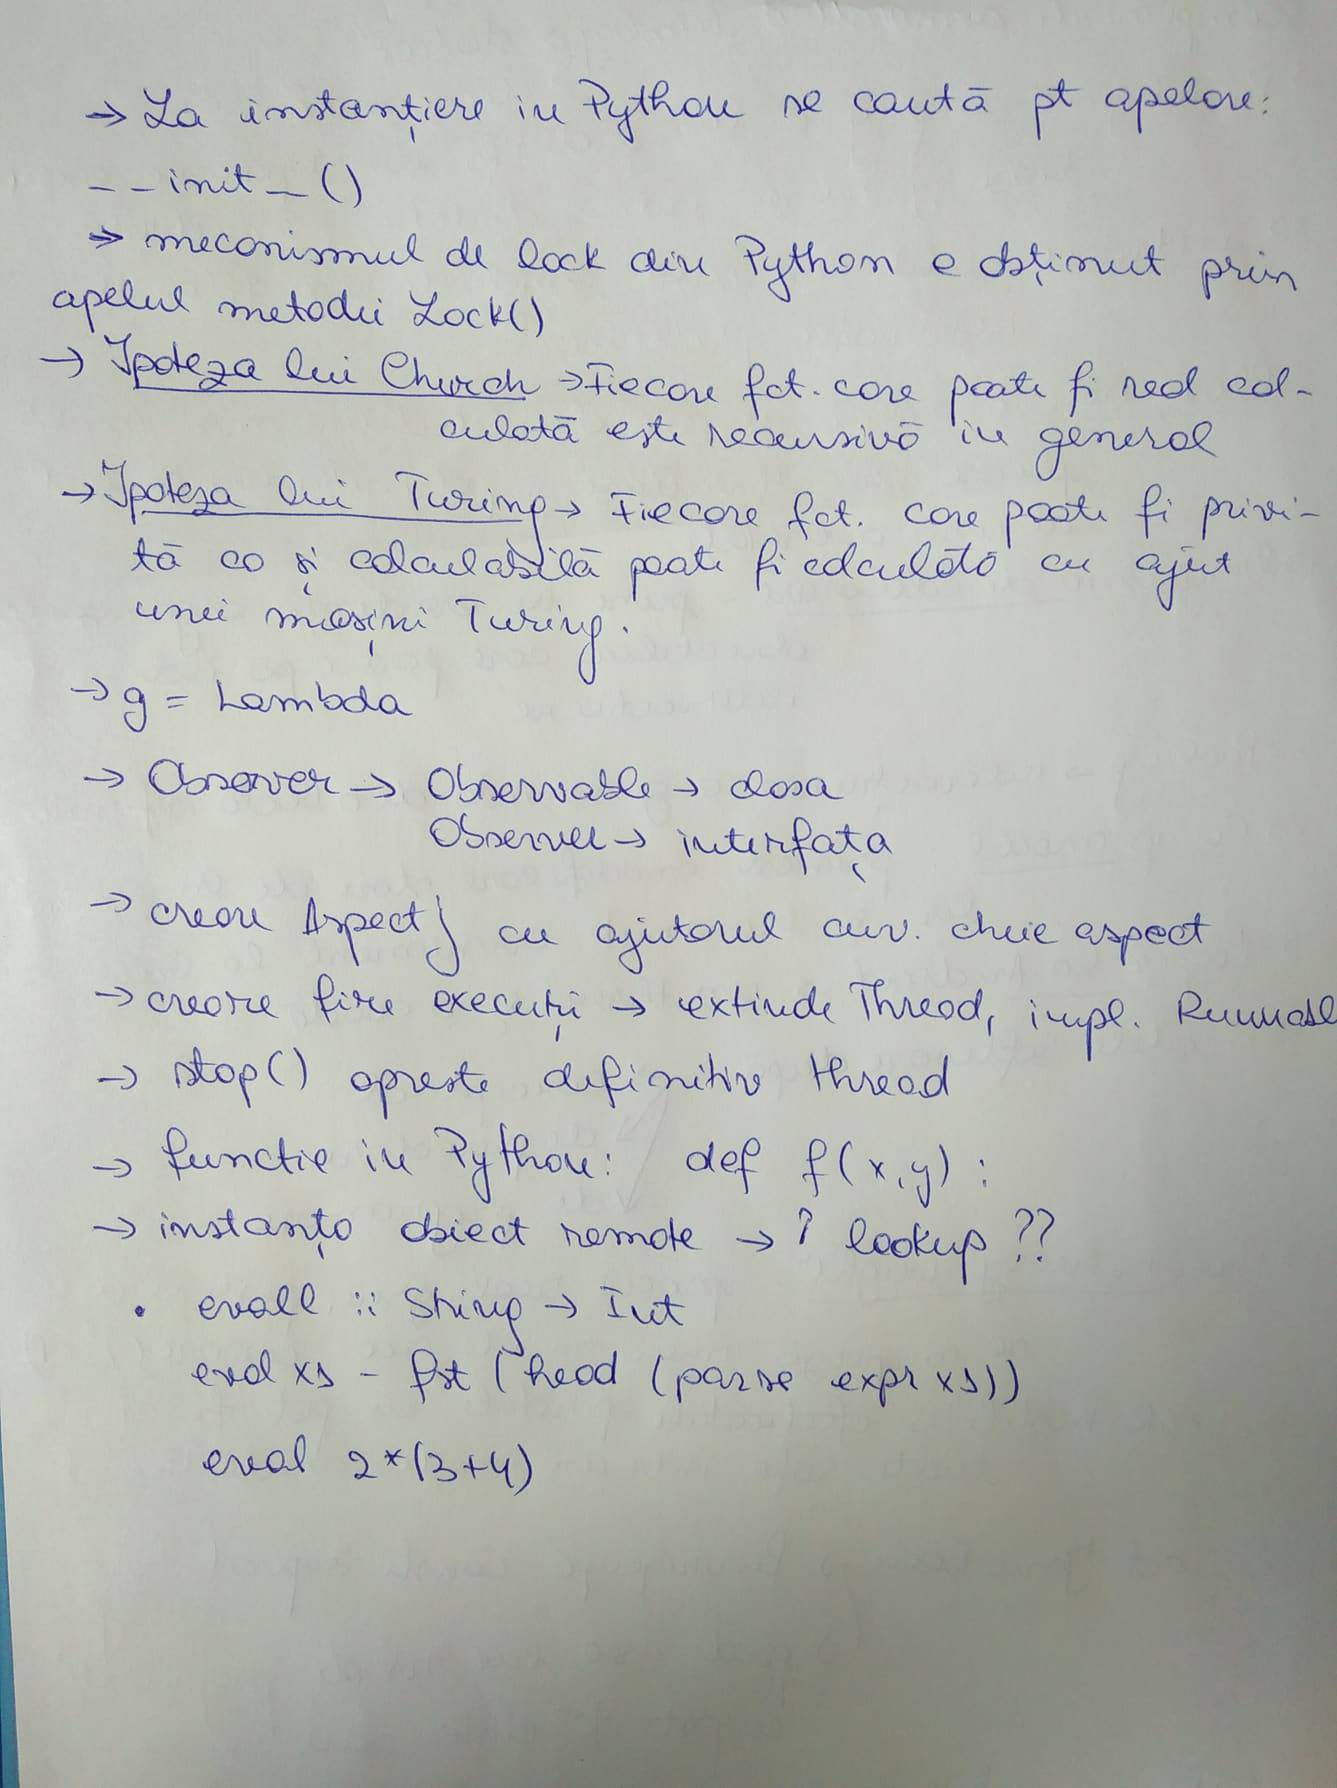 → La instanțiere in Python se caută pt apelare:
__init_()
→ mecanismul de lock din Python e obținut prin
apelul metodii Lock()
→ Ipoteza lui Church → Fiecare fct. care poate fi real cal-
culată este recursivă in general
→ Ipoteza lui Turing → Fiecare fct. care poate fi privi-
tă ca și calculabilă poate fi calculată cu ajut
unei mașini Turing.
→ g = Lambda
→ Observer → Observable → clasa
Observer → interfața
→ creare AspectJ cu ajutorul cuv. cheie aspect
→ creare fire execuții → extinde Thread, impl. Runnabl
→ stop() oprește definitiv thread
→ functie in Python: def f(x,y) :
→ instanța obiect remote → ? lookup ??
• evall :: String → Int
eval xs - fst (head (parse expr xs))
eval 2*(3+4)